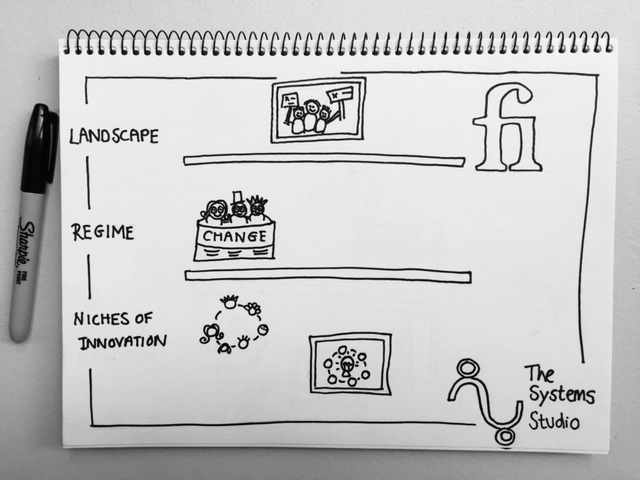 LANDSCAPE
REGIME
CHANGE
NICHES OF
INNOVATION
fi
The
Systems
Studio
Sharpie